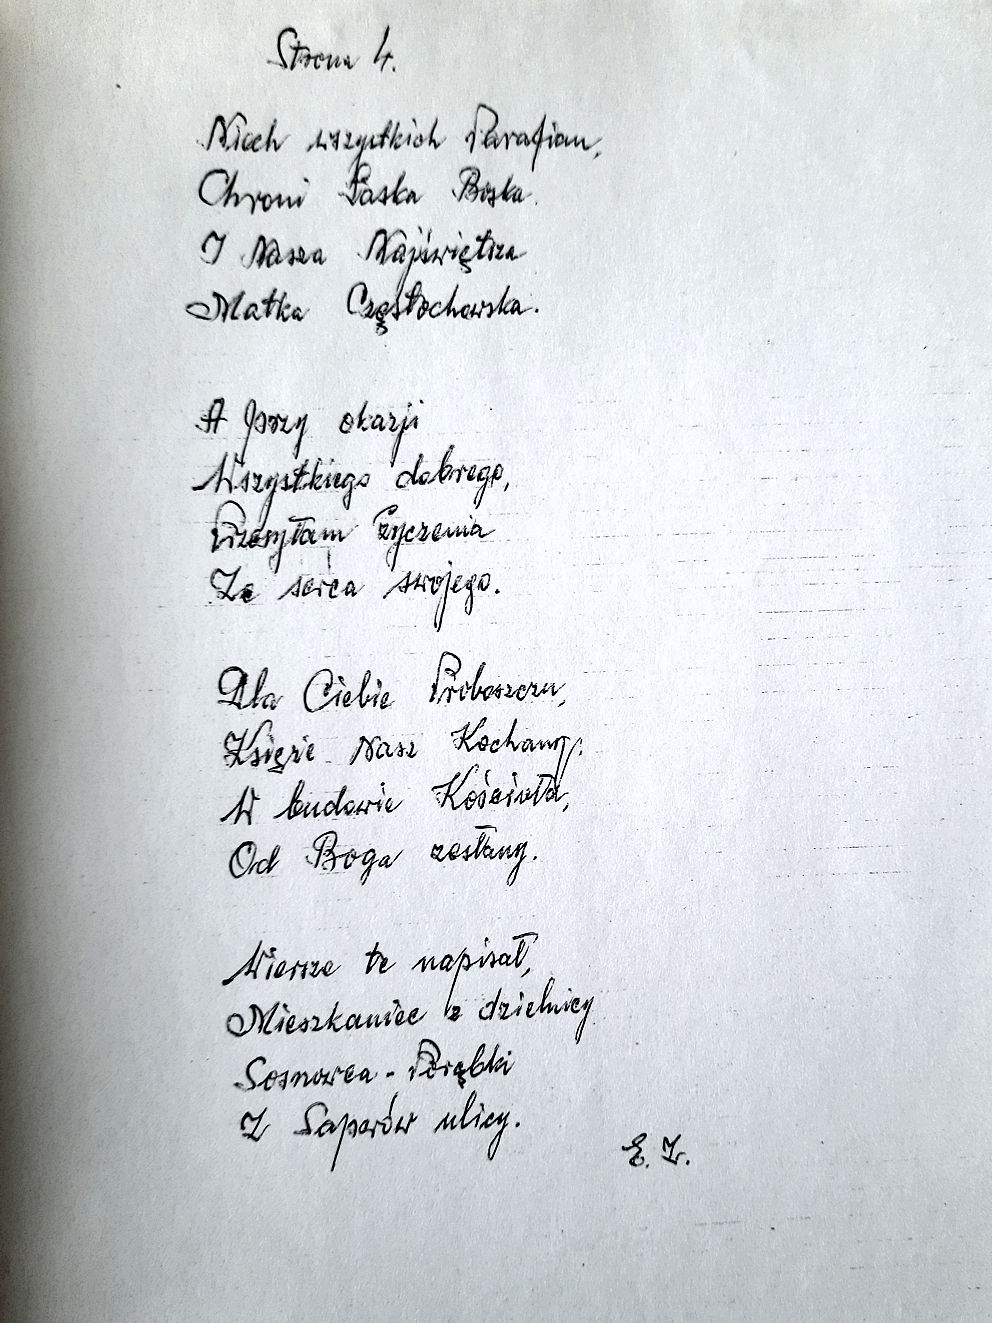 Strona 4.
Niech wszystkich Parafian,
Chroni Łaska Boska.
I Nasza Najświętsza
Matka Częstochowska.
A przy okazji
Wszystkiego dobrego,
Przesyłam życzenia
Ze serca swojego.
Dla Ciebie Proboszczu,
Księże Nasz Kochany.
W budowie Kościoła,
Od Boga zesłany.
Wiersze te napisał,
Mieszkaniec z dzielnicy
Sosnowca - Porąbki
Z Saperów ulicy.
E. Z.